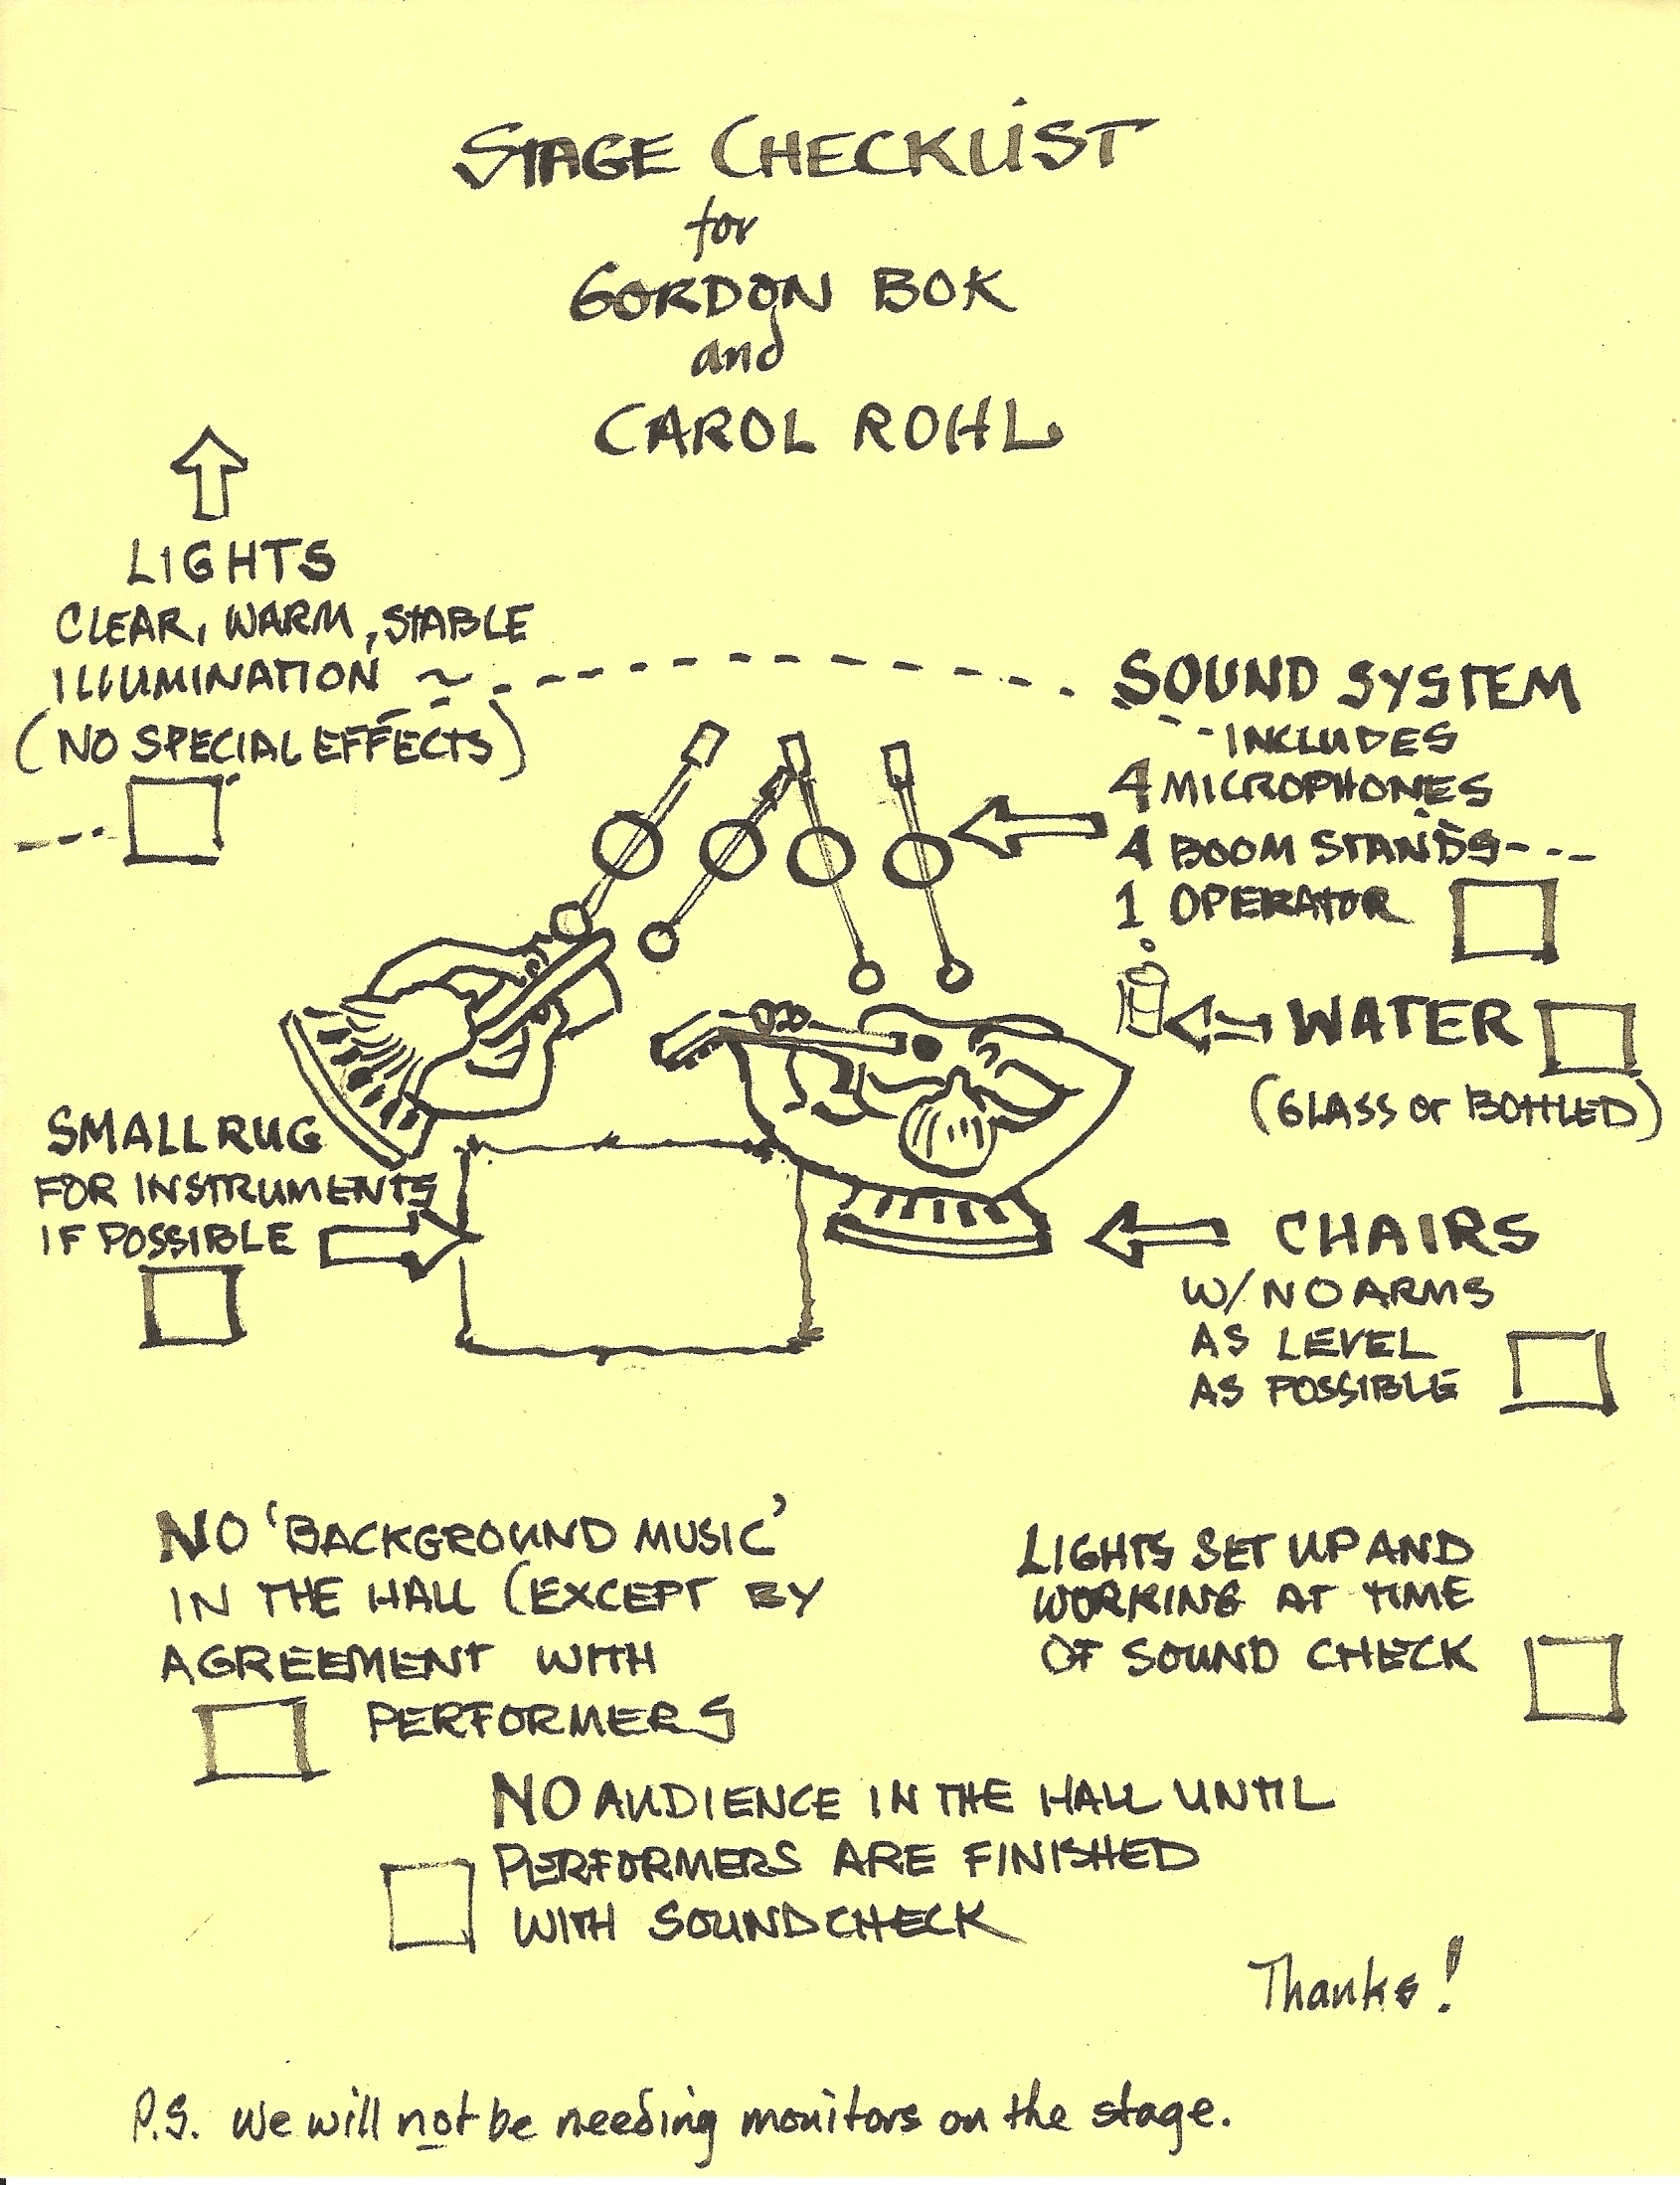 STAGE CHECKLIST
for
GORDON BOK
and
CAROL ROHL
LIGHTS
CLEAR, WARM, STABLE
ILLUMINATION
(NO SPECIAL EFFECTS)
SOUND SYSTEM
INCLUDES
4 MICROPHONES
4 BOOM STANDS
1 OPERATOR
WATER
(GLASS or BOTTLED)
SMALL RUG
FOR INSTRUMENTS
IF POSSIBLE
CHAIRS
W/ NO ARMS
AS LEVEL
AS POSSIBLE
NO 'BACKGROUND MUSIC'
IN THE HALL (EXCEPT BY
AGREEMENT WITH
PERFORMERS
LIGHTS SET UP AND
WORKING AT TIME
OF SOUND CHECK
NO AUDIENCE IN THE HALL UNTIL
PERFORMERS ARE FINISHED
WITH SOUNDCHECK
Thanks!
P.S. We will not be needing monitors on the stage.